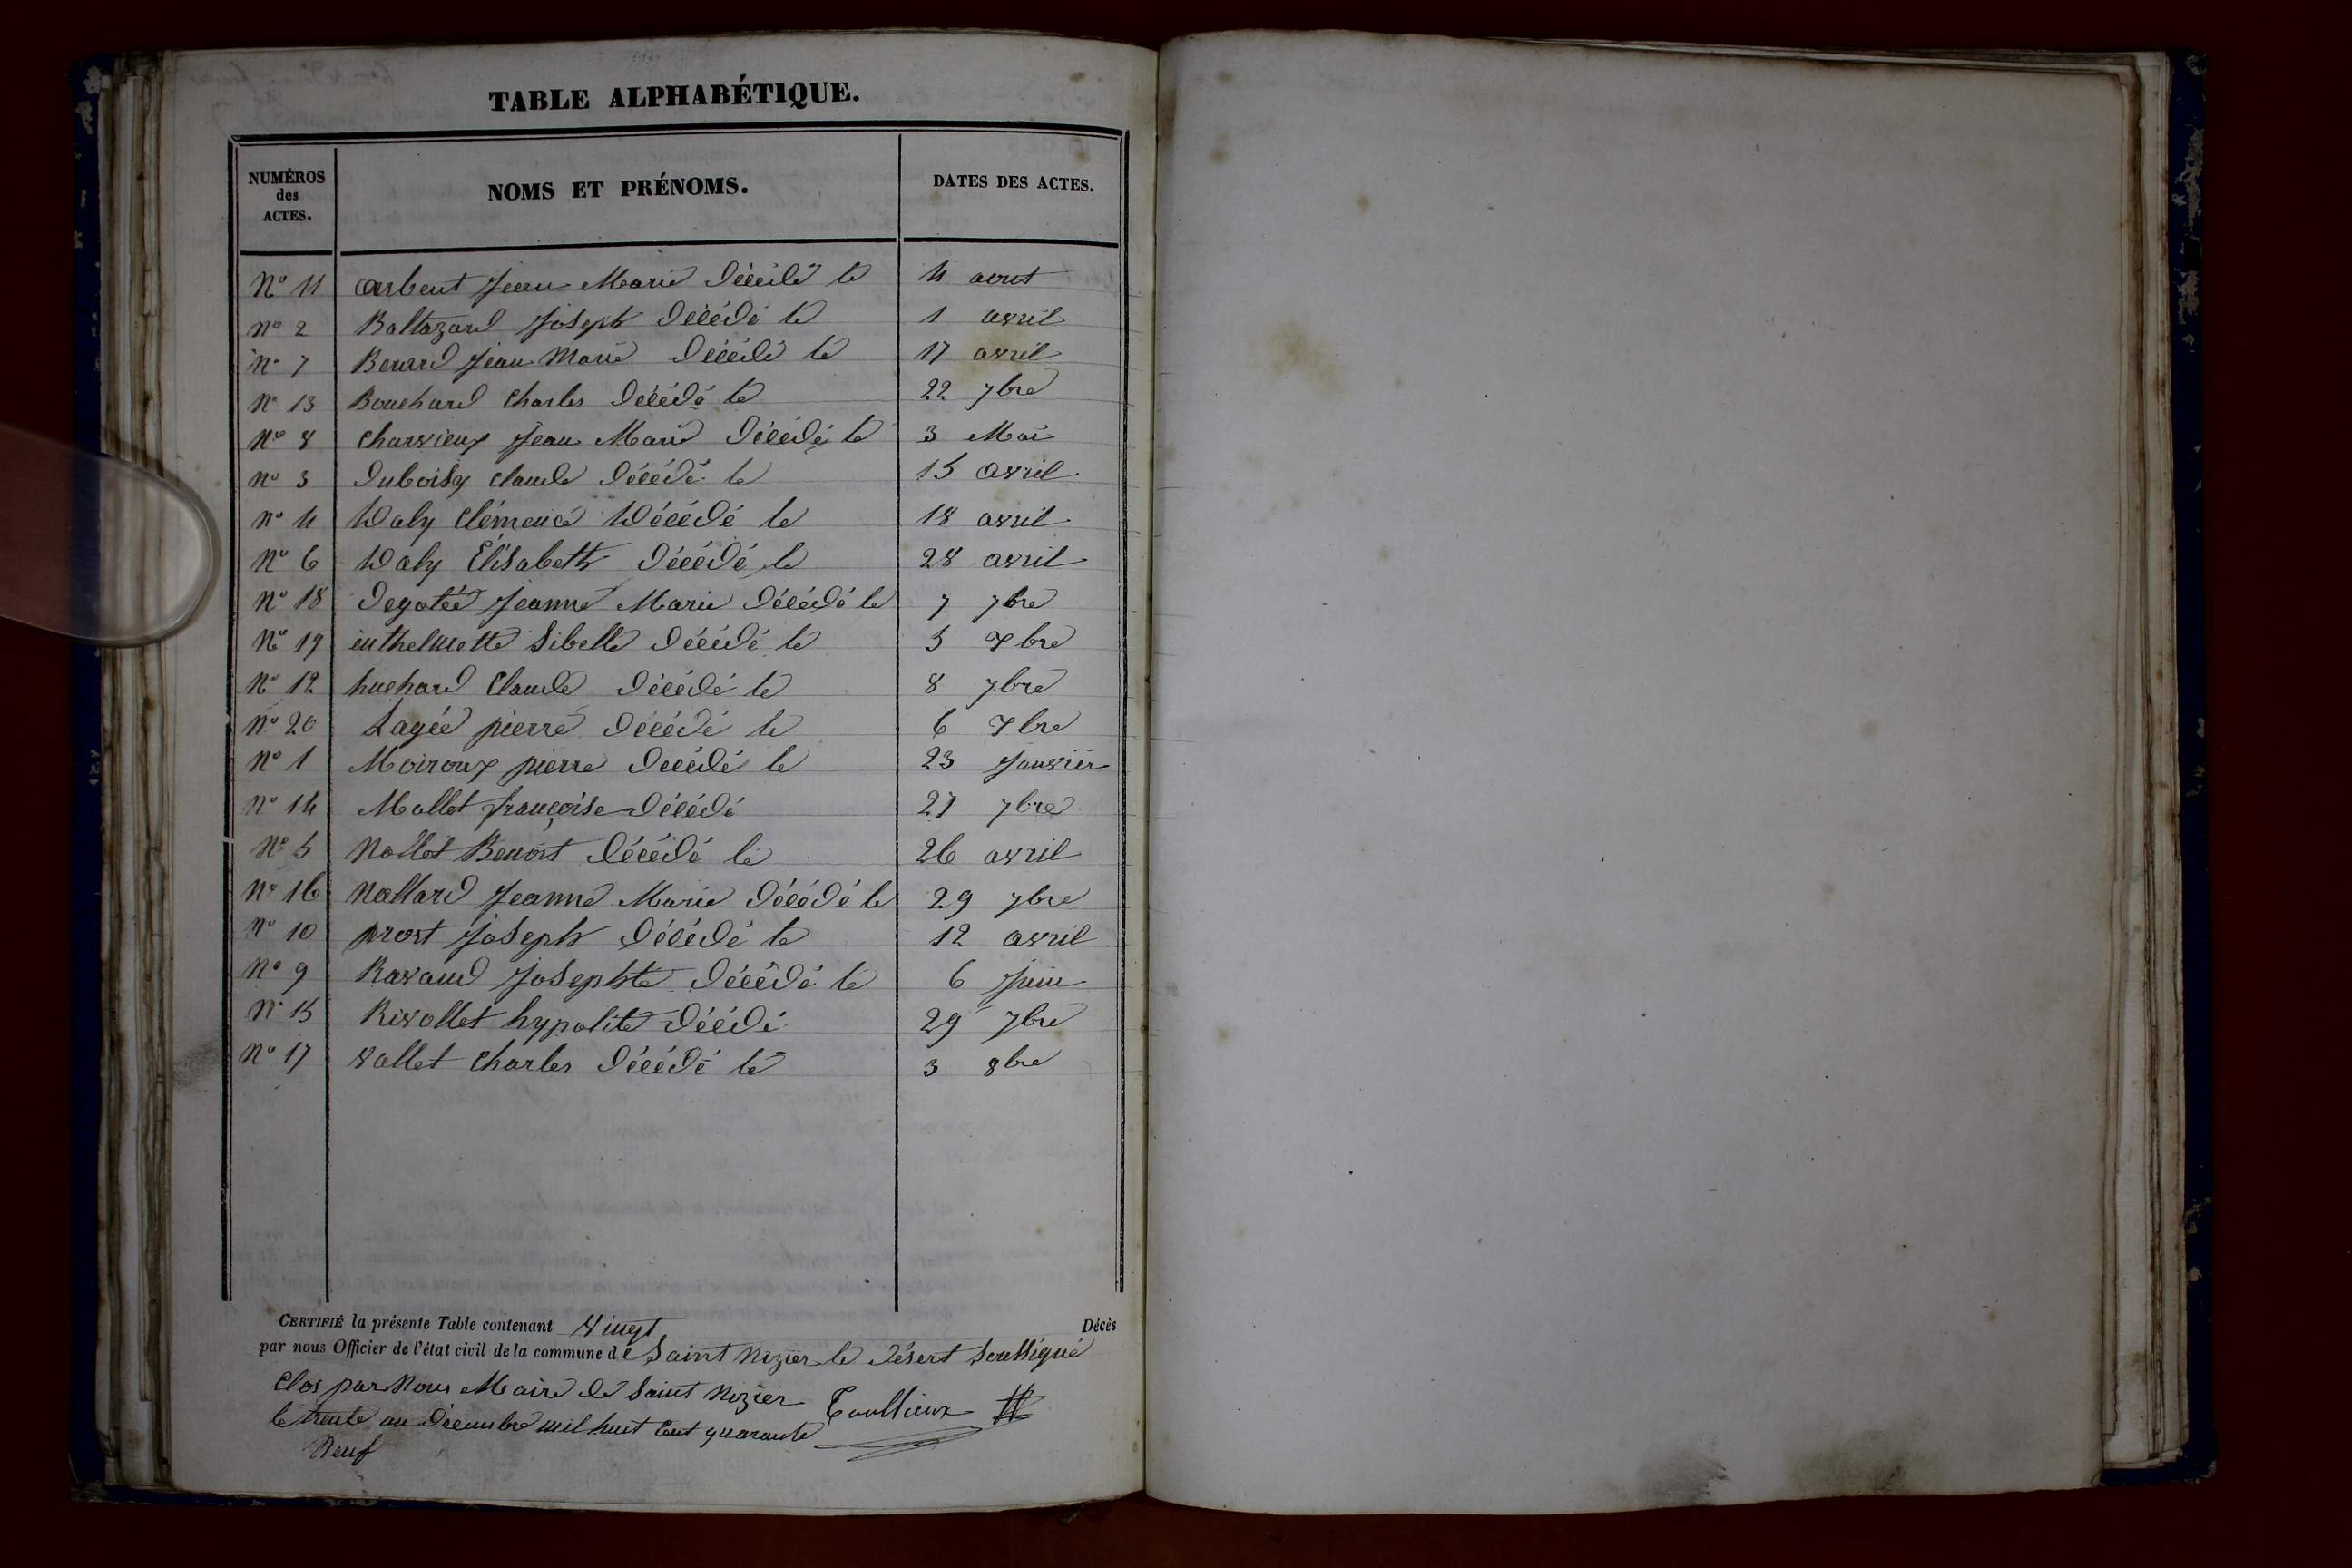 TABLE ALPHABÉTIQUE.
NUMÉROS des ACTES. NOMS ET PRÉNOMS. DATES DES ACTES.
No 11 arbent Jean Marie décédé le 4 aout
no 2 Baltazard Joseph décédé le 1 avril
n° 7 Berard Jean Marie décédé le 17 avril
n° 13 Bouchard Charles décédé le 22 7bre
No 8 charvieux Jean Marie décédé le 3 Mai
no 3 duboisy claude décédé le 15 avril
no 4 Daly Clémence Décédé le 18 avril
No 6 Daly Élisabeth décédé le 28 avril
No 18 degotée Jeanne Marie décédé le 7 7bre
No 19 Sibelle décédé le 5 7bre
No 12 huchard Claude décédé le 8 7bre
no 20 Lagée pierre décédé le 6 7bre
no 1 Moiroux pierre décédé le 23 Janvier
no 14 Mallet françoise décédé 27 7bre
No 5 Nollet Benoit décédé le 26 avril
No 16 Nallard Jeanne Marie décédé le 29 7bre
no 10 prost Joseph décédé le 12 avril
No 9 Ravaud Josephte décédé le 6 Juin
N° 15 Rivollet hypolite décédé 29 7bre
No 17 vallet Charles décédé le 3 8bre
CERTIFIÉ la présente Table contenant Vingt Décès
par nous Officier de l'état civil de la commune de Saint Nizier le désert Soussigné
Clos par Nous Maire de Saint Nizier
le trente un décembre mil huit Cent quarante
Neuf